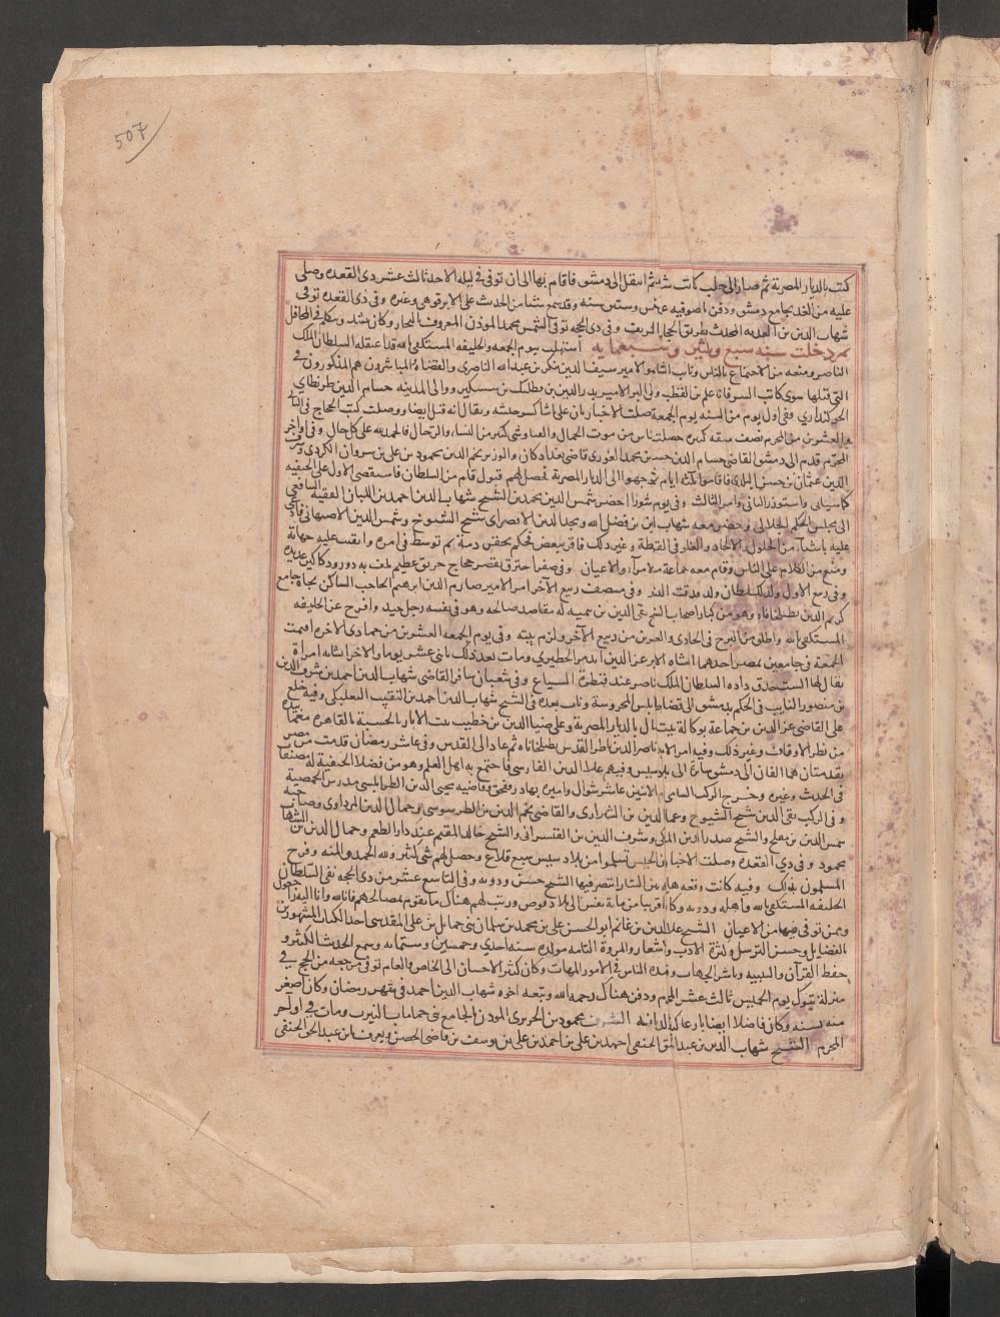 507
كتب بالديار المصرية ثم صار الى حلب كاتب ثم انتقل الى دمشق فاقام بها الى ان توفى فى ليلة الاحد ثالث عشر ذى القعده وصلى
عليه من الغد بجامع دمشق ودفن بالصوفيه عن خمس وستين سنه وقد سمع شيا من الحدث على الابرقوهى وغيره وفى ذى القعده توفى
شهاب الدين بن المحدث بطريق الحجاز الشريف وفى ذى الحجه توفى الشمس محمد المؤذن المعروف بالنجار وكان ينشد وتتكلم فى المحافل
ثم دخلت سنه سبع وثلثين وسبعمايه استهلت بيوم الجمعه والخليفه المستكفى بالله قد اعتقله السلطان الملك
الناصر ومنعه من الاجتماع بالناس ونايب الشام الامير سيف الدين تنكز بن عبد الله الناصرى والقضاه والمباشرون هم المذكورون فى
التى قبلها سوى كاتب السر فانه علم الدين بن القطب ووالى البر الامير بدر الدين بن ووالى المدينه حسام الدين طرنطاى
الجوكندارى وفى اول يوم من السنه يوم الجمعه وصلت الاخبار بان على باشا كسر جيشه ويقال انه قتل ايضا ووصلت كتب الحجاج فى الثانى
والعشرين من المحرم تصف مشقه كبيره حصلت للناس من موت الجمال والمشاه ومشى كثير من النسا والرجال فالحمد لله على كل حال وفى اواخر
المحرم قدم الى دمشق القاضى حسام الدين حسن بن محمد الغورى قاضى بغداد كان والوزير نجم الدين محمود بن على بن سروان الكردى وشرف
الدين عثمان بن حسن البلدى فاقاموا ثلثه ايام ثم توجهوا الى الديار المصرية فحصل لهم قبول تام من السلطان فاستقضى الاول على الحنفيه
كما سياتى واستوزر الثانى وامر الثالث وفى يوم عاشورا احضر شمس الدين محمد بن الشيخ شهاب الدين احمد بن اللبان الفقيه الشافعى
الى مجلس الحكم الجلالى وحضر معه شهاب ابن بن فضل الله ومجد الدين الاقصراى شيخ الشيوخ وشمس الدين الاصبهانى فادعى
عليه باشيا من الحلول والاتحاد والغلو فى القرمطة وغير ذلك فاقر ببعض فحكم بحقن دمه ثم توسط فى امره وابقيت عليه جهاته
ومنع من الكلام على الناس وقام معه جماعه من الامرا والاعيان وفى صفر احترق بقصر حجاج حريق عظيم تلفت به دور ودكاكين عديده
وفى ربيع الاول ولد للسلطان ولد فدقت البشاير وفى منتصف ربيع الآخر امر الامير صارم الدين ابرهيم الحاجب الساكن تجاه جامع
كريم الدين بطبلخاناه وهو من كبار اصحاب الشيخ تقى الدين بن تيميه له مقاصد صالحه وهو فى نفسه رجل جيد وافرج عن الخليفه
المستكفى بالله واطلق من البرج فى الحادى والعشرين من ربيع الآخر ولزم بيته وفى يوم الجمعه العشرين من جمادى الاخره اقيمت
الجمعه فى جامعين بمصر احدهما انشاه الامير عز الدين ايدمر الخطيرى ومات بعد ذلك باثنى عشر يوما والاخر انشاته امراة
يقال لها الست حدق داده السلطان الملك الناصر عند قنطرة السباع وفى شعبان سافر القاضى شهاب الدين احمد بن شرف الدين
بن منصور النايب فى الحكم بدمشق الى قضا طرابلس المحروسة وناب بعده فى الشيخ شهاب الدين احمد بن النقيب البعلبكى وفيه خلع
على القاضى عز الدين بن جماعة بوكالة بيت المال بالديار المصرية وعلى ضيا الدين بن خطيب بيت الابار بالحسبة بالقاهره مع ما بيده
من نظر الاوقاف وغير ذلك وفيه امر الامير ناصر الدين ناظر القدس بطبلخاناه ثم عاد الى القدس وفى عاشر رمضان قدمت من مصر
مقدمتان هما الفان الى دمشق سايرة الى بلاد سيس وفيهم علا الدين الفارسى فاجتمع به اهل العلم وهو من فضلا الحنفية له مصنفات
فى الحدث وغيره وخرج الركب الشامى الاثنين عاشر شوال واميره بهادر قبجق وقاضيه محيى الدين الطرابلسى مدرس الحمصية
وفى الركب تقى الدين شيخ الشيوخ وعماد الدين بن الشيرازى والقاضى نجم الدين بن الطرسوسى وجمال الدين المرداوى وصاحبه
شمس الدين بن مفلح والشيخ صدر الدين المالكى وشرف الدين بن القيسرانى والشيخ خالد المقيم عند دار الطعم وجمال الدين بن الشهاب
محمود وفى ذى القعده وصلت الاخبار بان الجيش تسلموا من بلاد سيس سبع قلاع وحصل لهم شى كثير ولله الحمد والمنه وفرح
المسلمون بذلك وفيه كانت وقعه هايله بين التتار انتصر فيها الشيخ حسن وذووه وفى التاسع عشر من ذى الحجه نفى السلطان
الخليفه المستكفى بالله واهله وذووه وكانوا قريبا من ماية نفس الى بلاد قوص ورتب لهم هناك ما يقوم بمصالحهم فانا لله وانا اليه راجعون
وممن توفى فيها من الاعيان الشيخ علا الدين بن غانم ابو الحسن على بن محمد بن سلمان بن حمايل بن على المقدسى احد الكبار المشهورين
بالفضايل وحسن الترسل وكثرة الادب والاشعار والمروة التامه مولده سنه احدى وخمسين وستمايه وسمع الحدث الكثير و
حفظ القرآن والتنبيه وباشر الجهات وقصده الناس فى الامور المهمات وكان كثير الاحسان الى الخاص والعام توفى مرجعه من الحج فى
منزلة تبوك يوم الخميس ثالث عشر المحرم ودفن هناك رحمه الله وتبعه اخوه شهاب الدين احمد فى شهر رمضان وكان اصغر
منه بسنه وكان فاضلا ايضا بارعا كثير الدعابه الشرف محمود بن الحريرى المؤذن بالجامع بنى حماما بالنيرب ومات فى اواخر
المحرم الشيخ شهاب الدين بن عبد الحق الحنفى احمد بن على بن احمد بن على بن يوسف بن قاضى الحصن ويعرف بابن عبد الحق الحنفى